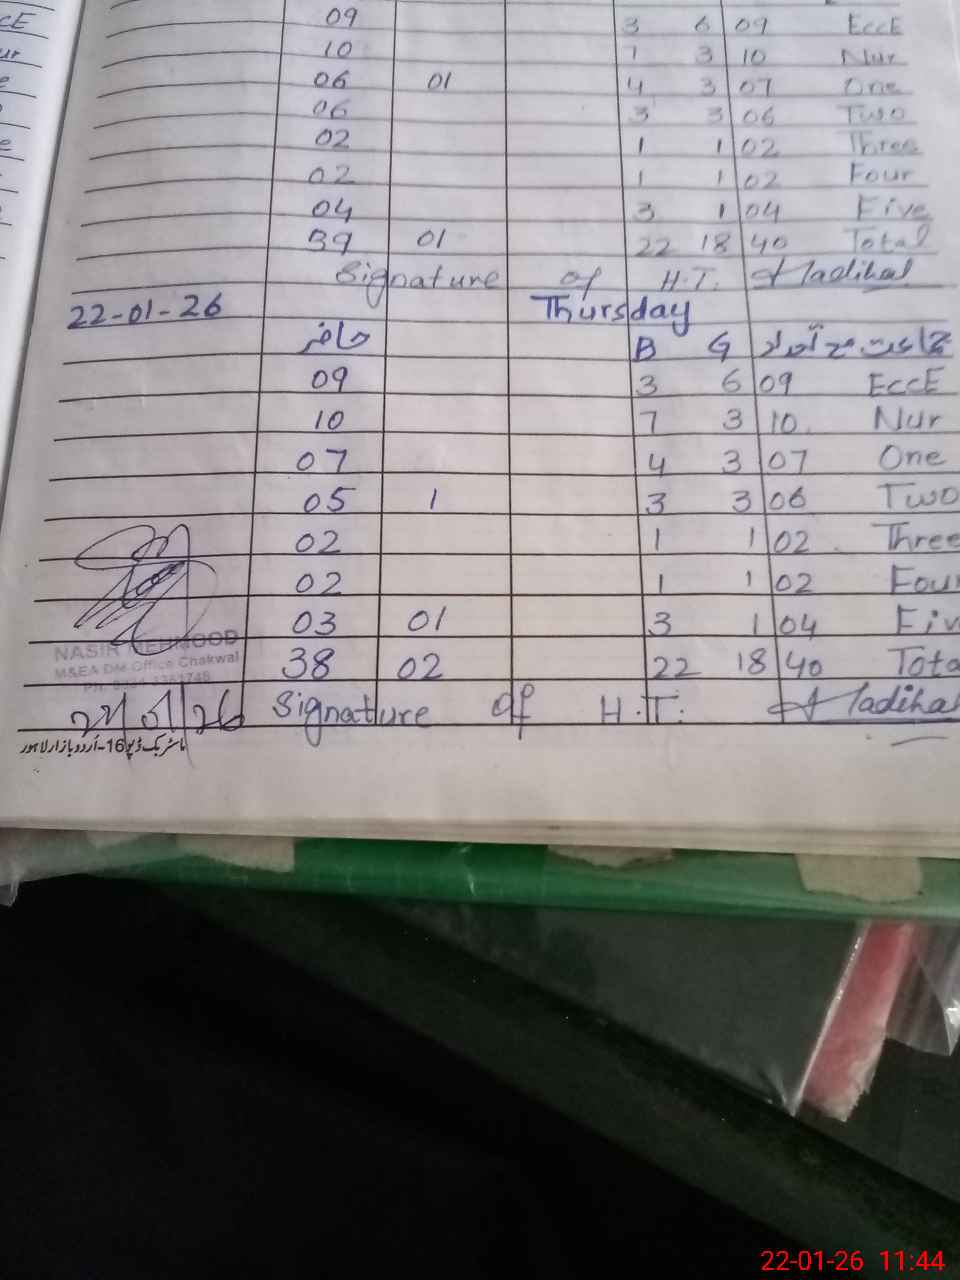 09 3 6 09 EccE
10 7 3 10 Nur
06 01 4 3 07 One
06 3 3 06 Two
02 1 1 02 Three
02 1 1 02 Four
04 3 1 04 Five
39 01 22 18 40 Total
Signature of H.T. Hadihal
22-01-26 Thursday
حاضر B G جماعت
09 3 6 09 EccE
10 7 3 10 Nur
07 4 3 07 One
05 1 3 3 06 Two
02 1 1 02 Three
02 1 1 02 Four
03 01 3 1 04 Fiv
38 02 22 18 40 Tota
NASIR MEHMOOD
M&EA DM Office Chakwal
22/01/26 Signature of H.T. Hadihal
ماسٹر بک ڈپو 16-اُردو بازار لاہور
22-01-26 11:44